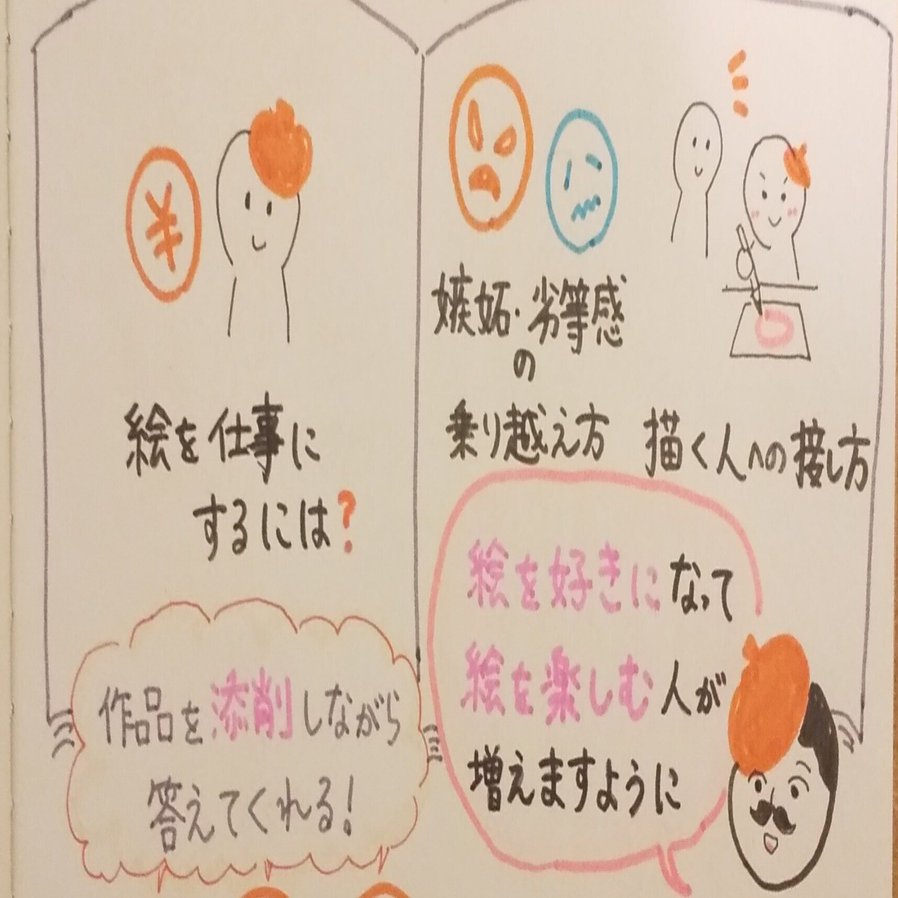 ¥
絵を仕事に
するには?
作品を添削しながら
答えてくれる!
嫉妬・劣等感
の
乗り越え方
描く人への接し方
絵を好きになって
絵を楽しむ人が
増えますように